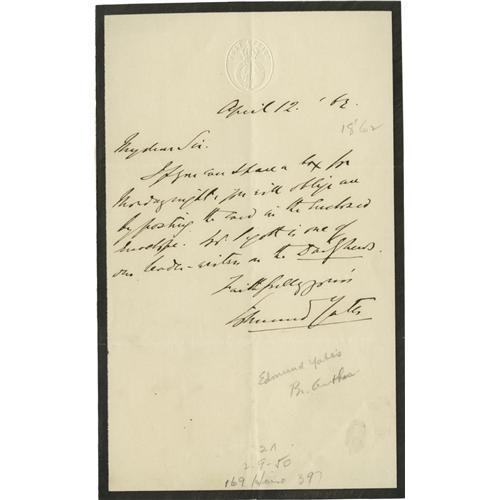 April 12. '62
1862
My dear Sir.
If you can spare a box for
Monday night, you will oblige me
by posting the card in the enclosed
envelope. Mr is one of
our leader-writers on the Daily
Faithfully yours
Edmund Yates
Edmund Yates
Br. Author
2-9-50
169 397